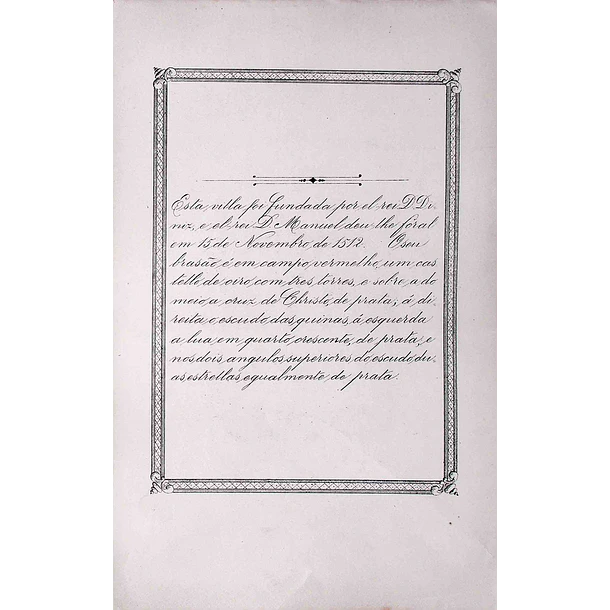 Esta villa foi fundada por el rei D. Di-
niz, e el rei D. Manuel deu lhe foral
em 15 de Novembro de 1512. O seu
brasão é em campo vermelho, um cas
tello de oiro, com tres torres, e sobre a do
meio, a cruz de Christo, de prata; á di-
reita, o escudo das quinas, á esquerda
a lua, em quarto crescente, de prata, e
nos dois angulos superiores do escudo, du-
as estrellas, egualmente de prata.